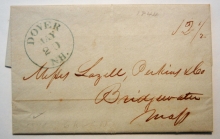 DOVER
N.H.
12½
Messrs Lazell, Perkins & Co
Bridgewater
Mass